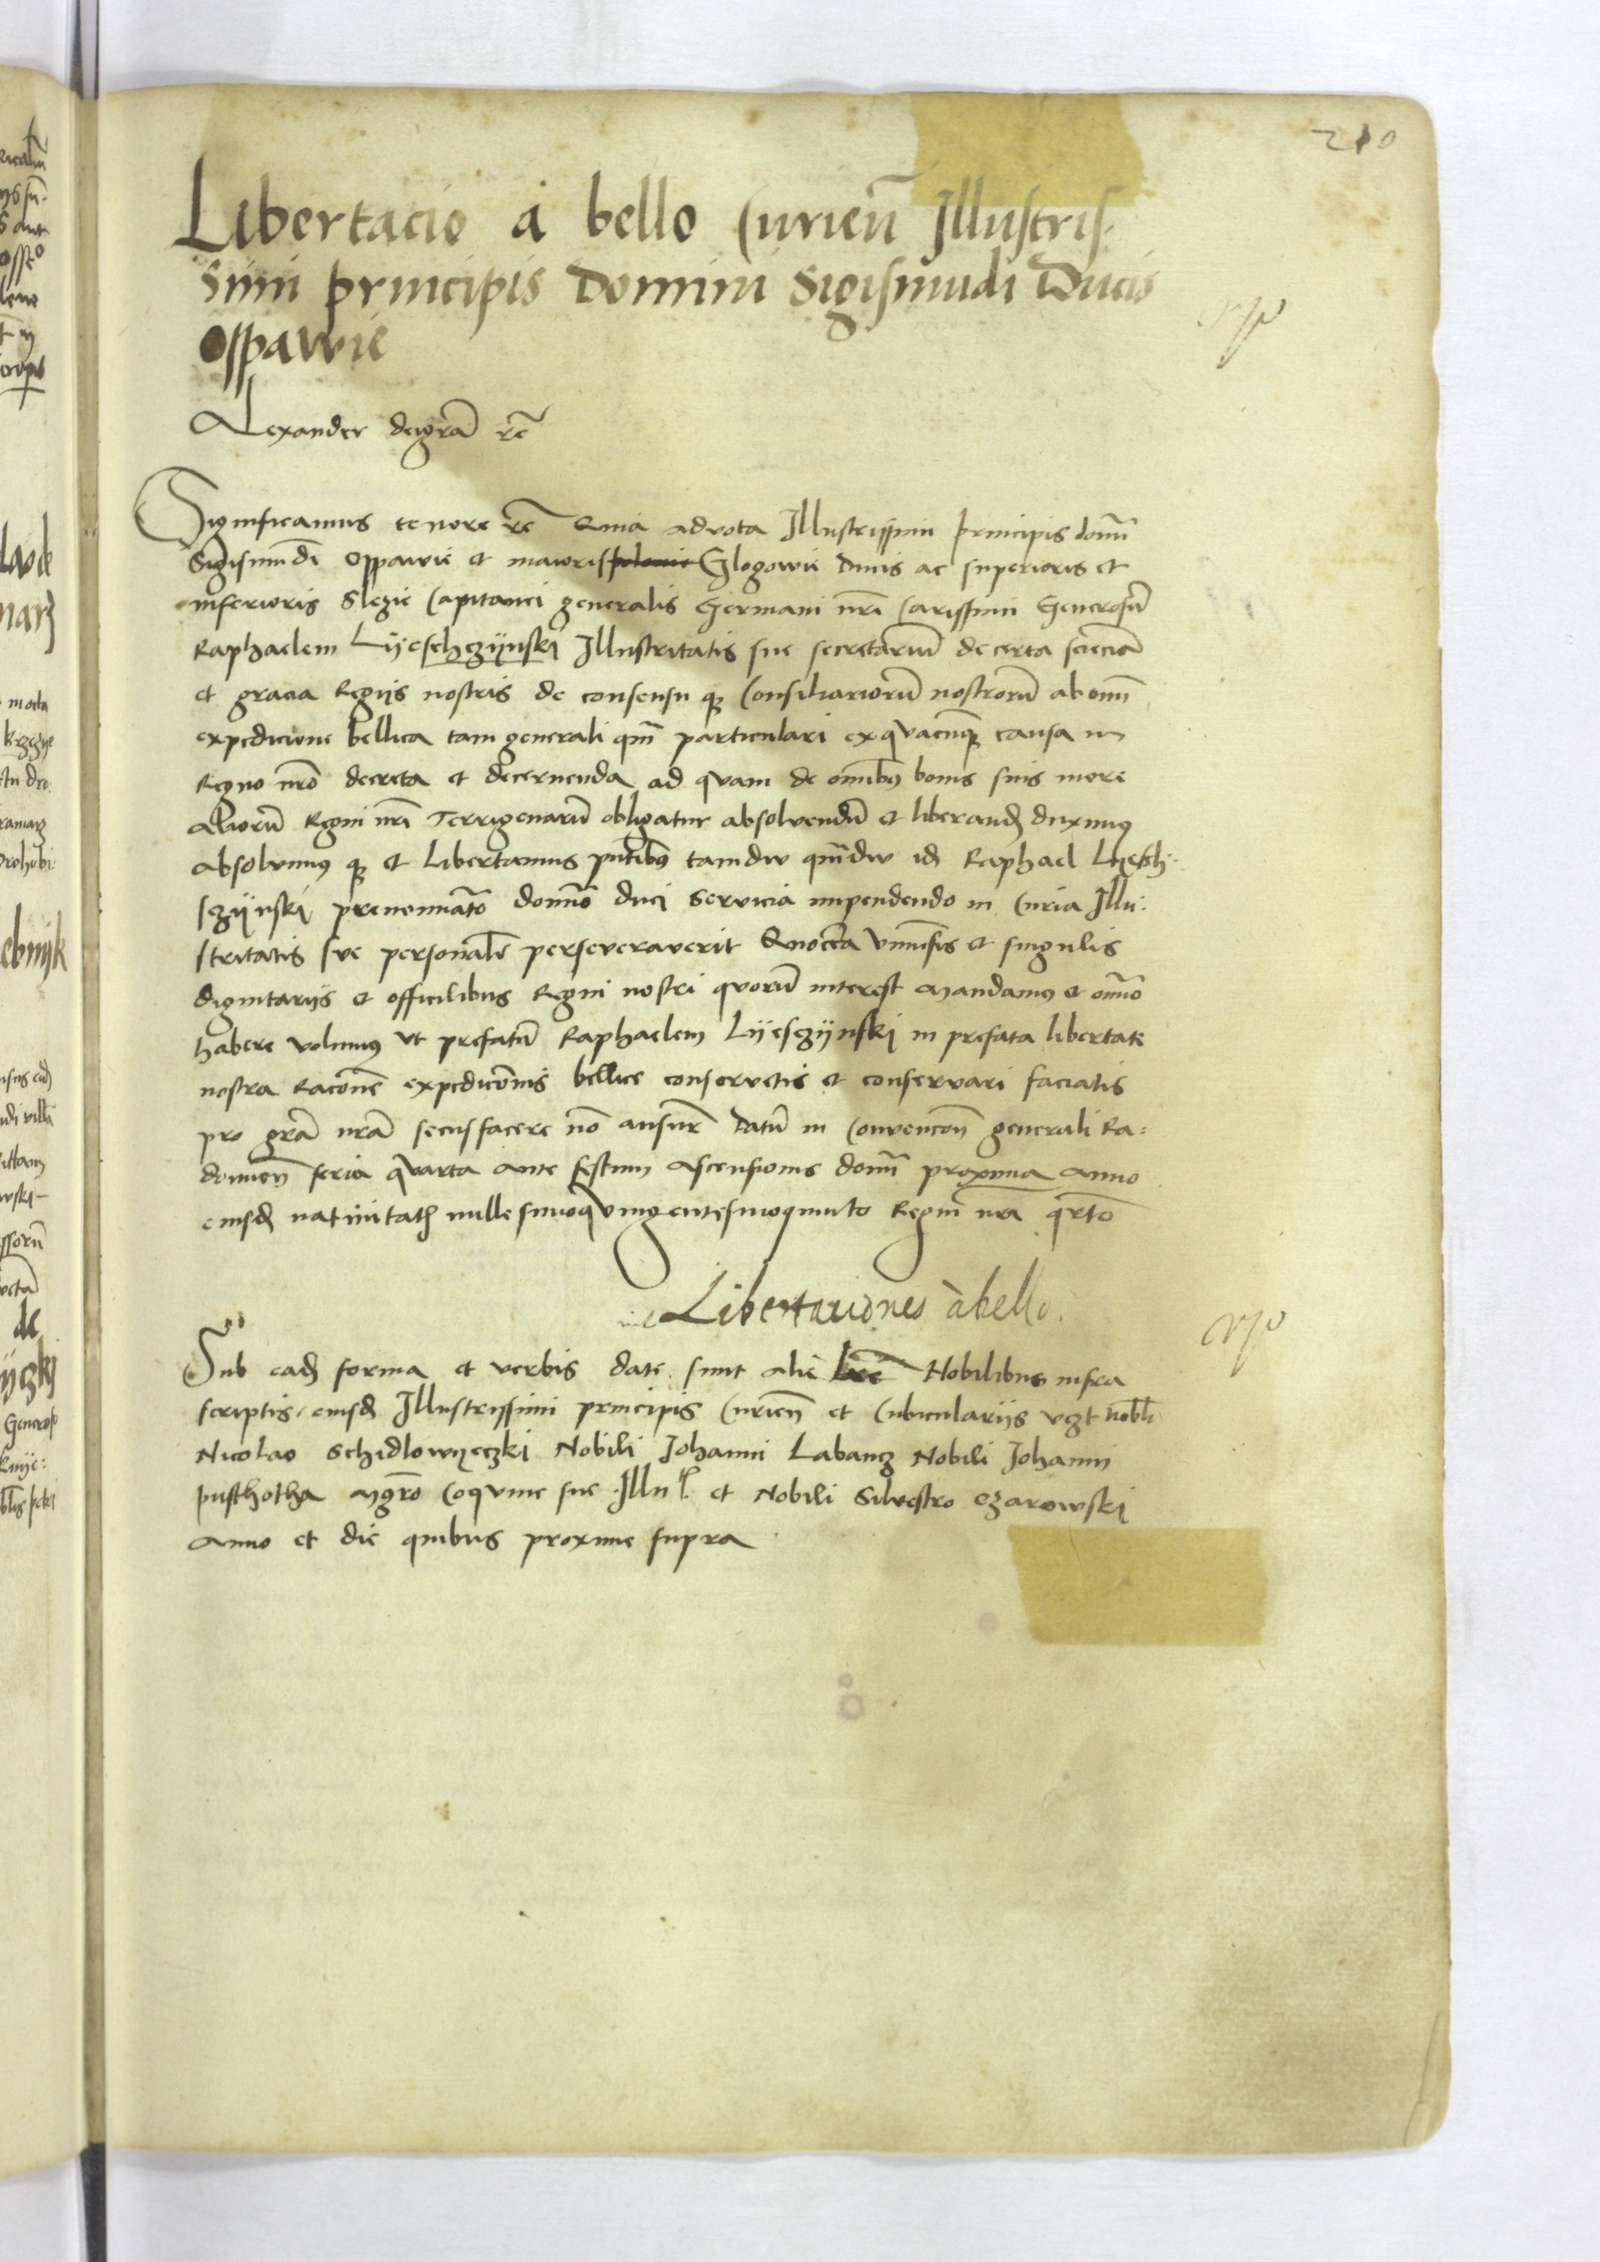 210
Libertacio a bello Curien̄ Illustris-
simi principis domini Sigismūdi Ducis
Oppawie
Alexander dei grā rc̄
Significamus tenore rc̄ Quia ad vota Illustrissimi principis domī
Sigismūdi Oppawie et maioris Glogowie Ducis ac superioris et
inferioris Slezie Capitanei generalis Germani nr̄i Carissimi Generosū
Raphaelem Lyeschczynski Illustritatis sue secretariū de certa sciēcia
et gracia Regijs nostris de consensu qȝ Consiliariorū nostrorū ab omī
expedicione bellica tam generali qm̄ particulari ex qvacūqȝ causa in
Regno nr̄o decreta et decernenda ad qvam de omībꝰ bonis suis more
aliorū Regni nr̄i Terrigenarū obligatur absolvendū et liberandꝭ duximꝰ
absolvimꝰ qȝ et libertamus pn̄tibꝰ tamdiu qm̄diu idꝭ Raphael Lyesch-
czynski prenominato domīo duci servicia impendendo in Curia Illu-
stritatis sve personalr̄ perseveraverit Quocc̄a Vniūsis et singulis
dignitarijs et officilibus Regni nostri qvorū interest mandamꝰ et omīo
habere volumꝰ vt prefatū Raphaelem Lyesczynski in prefata libertate
nostra racōne expedicōnis bellice conservetis et conservari faciatis
pro grā nrā secus facere nō ausurī Datū in Convencōn generali Ra-
domien̄ feria qvarta ante festum ascensionis domī proxima anno
eiusdꝭ nativitatꝭ millesimoqvingentesimoqvinto Regnī nr̄i qr̄to
Libertaciones à bello.
Sub eadꝭ forma et verbis date sunt alie lr̄e Nobilibus infra
scriptis eiusdꝭ Illustrissimi principis Curien̄ et Cubicularijs vcȝt nobl̄i
Nicolao Schidlowyeczki Nobili Johanni Labancz Nobili Johanni
pusthotha mgr̄o Coqvine sue Illu et Nobili Silvestro Ozarowski
anno et die quibus proxime supra